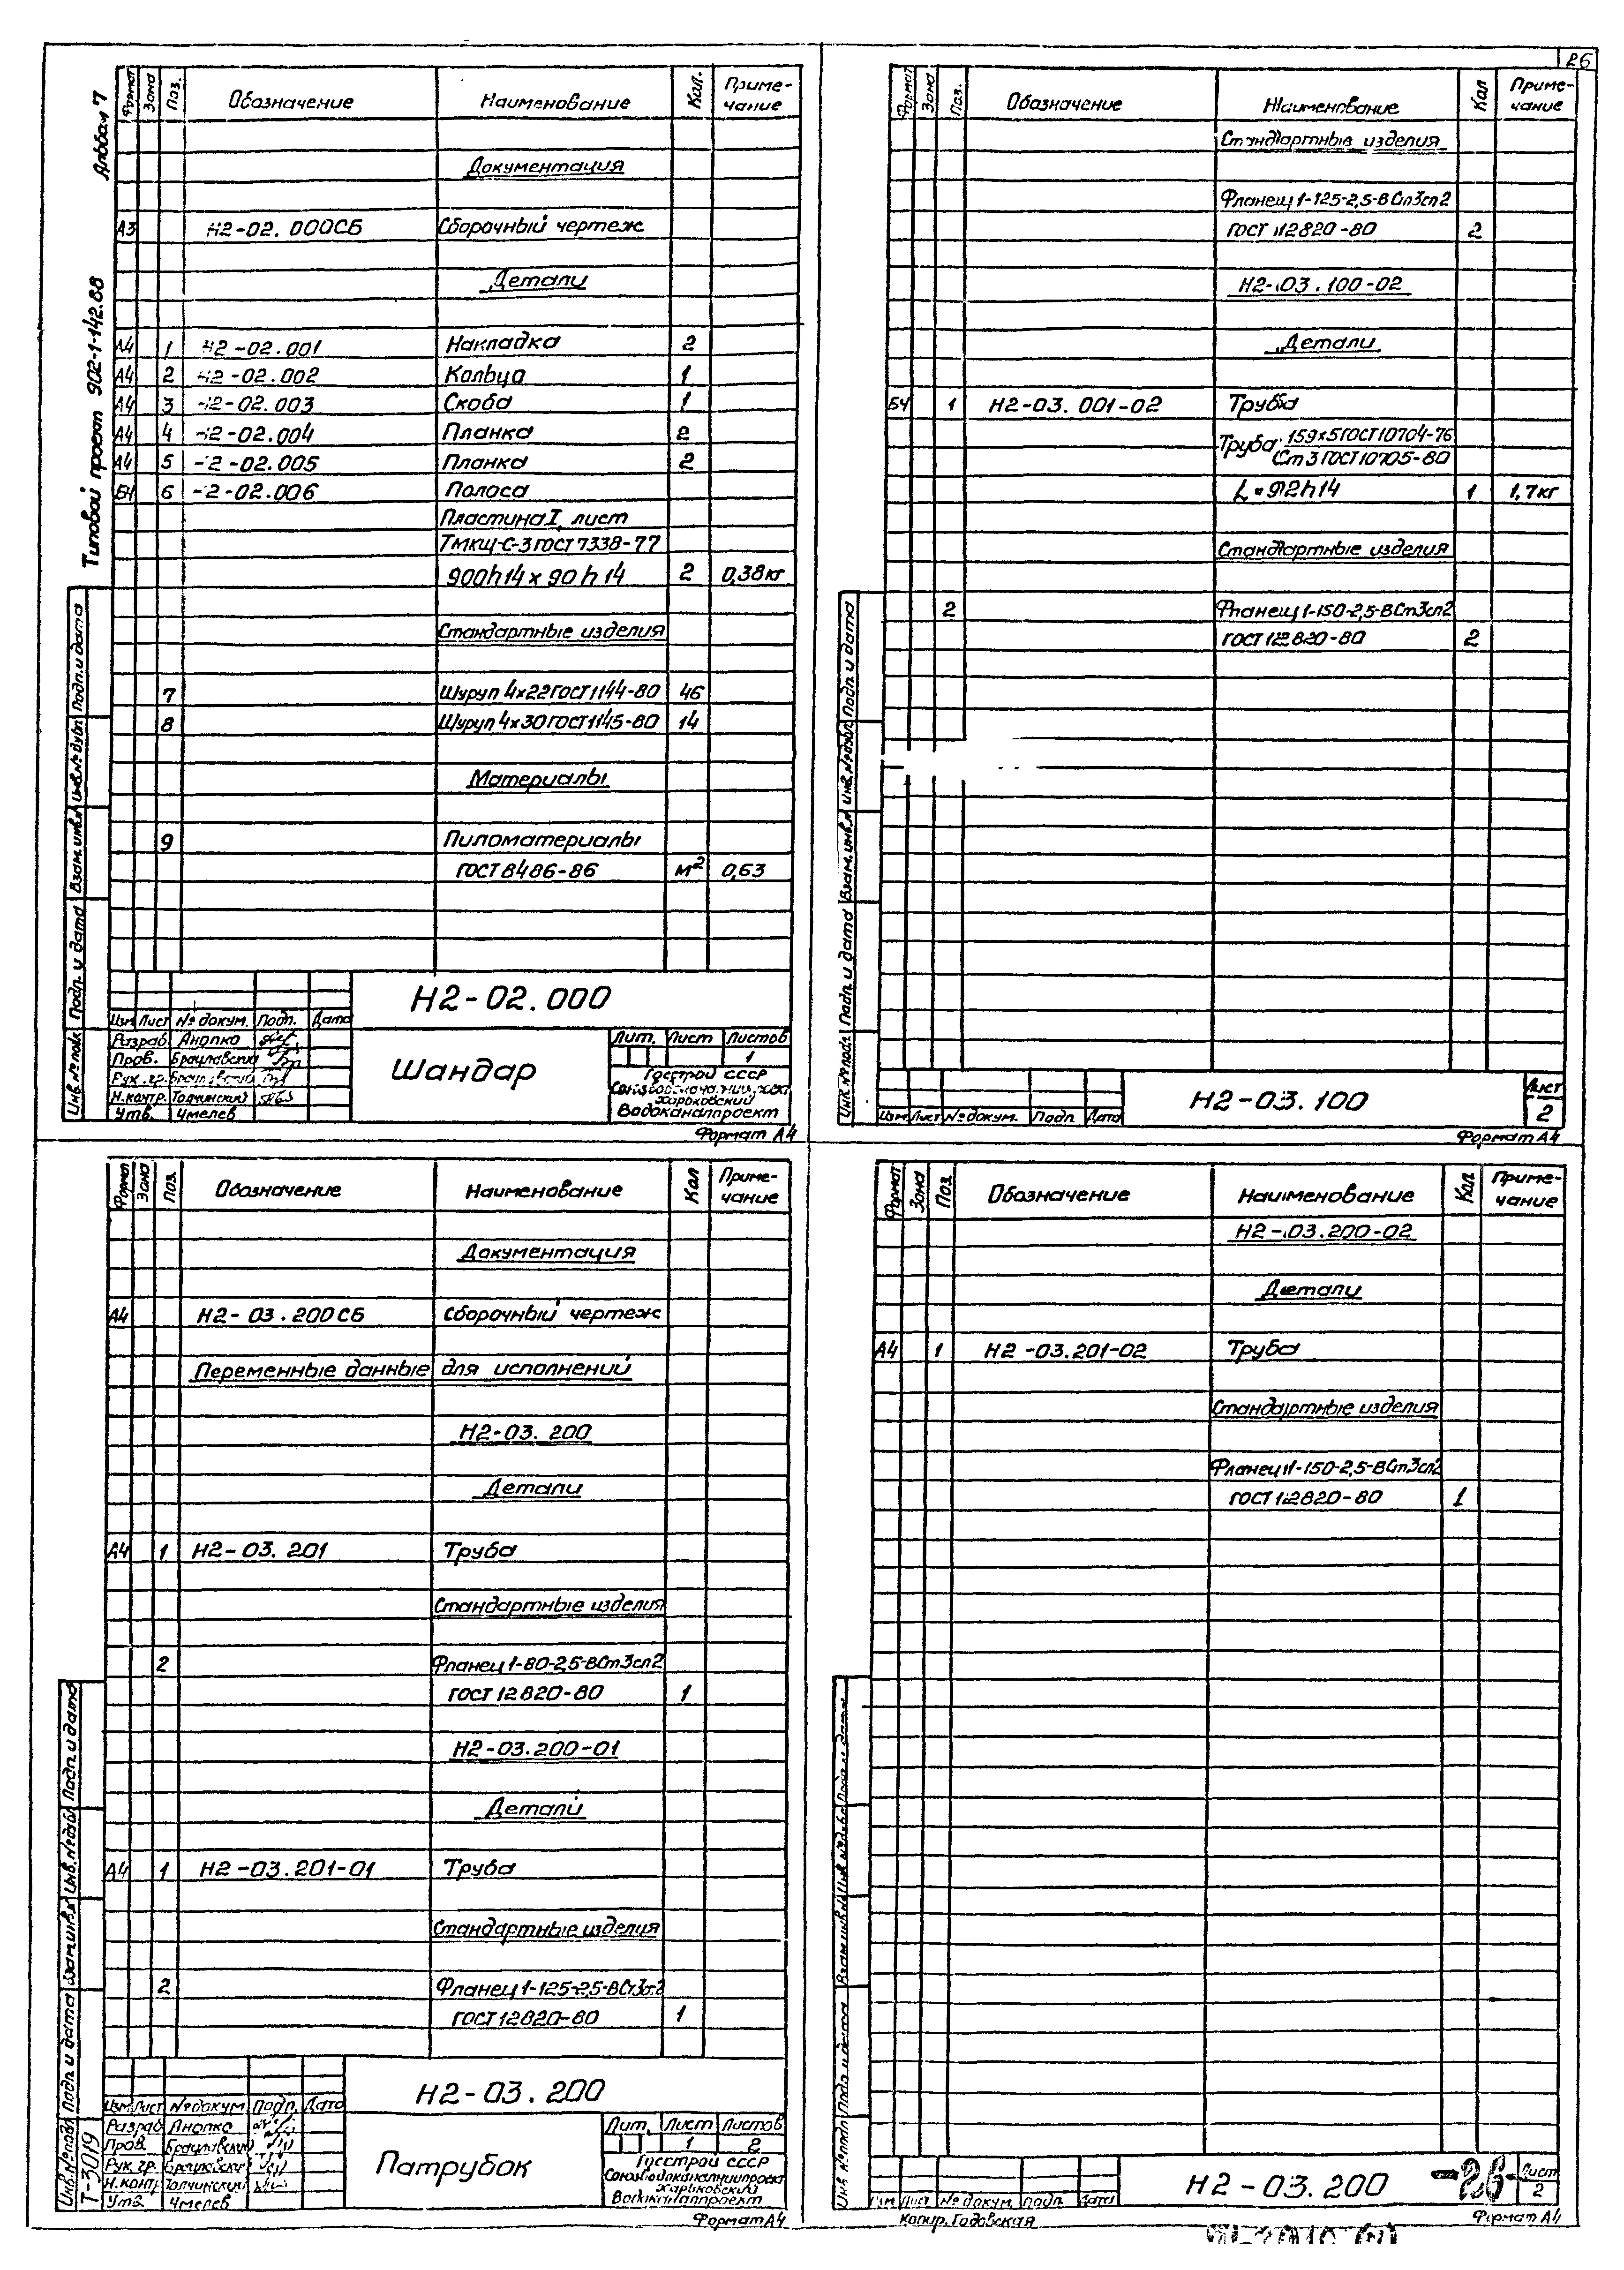 26
Альбом 7
Типовой проект 902-1-142.88
Формат Зона Поз. Обозначение Наименование Кол. Приме-
чание
Документация
А3 Н2-02.000СБ Сборочный чертеж
Детали
А4 1 Н2-02.001 Накладка 2
А4 2 Н2-02.002 Кольцо 1
А4 3 -2-02.003 Скоба 1
А4 4 -2-02.004 Планка 2
А4 5 -2-02.005 Планка 2
БЧ 6 -2-02.006 Полоса
Пластина I, лист
ТМКЩ-С-3 ГОСТ 7338-77
900h14 х 90h14 2 0,38кг
Стандартные изделия
7 Шуруп 4х22 ГОСТ 1144-80 46
8 Шуруп 4х30 ГОСТ 1145-80 14
Материалы
9 Пиломатериалы
ГОСТ 8486-86 м² 0,63
Н2-02.000
Изм Лист № докум. Подп. Дата
Разраб Анопко
Пров. Брацлавский
Рук. гр.
Н.контр. Толчинский
Утв. Умелев
Шандар
Лит. Лист Листов
1
Госстрой СССР
Харьковский
Водоканалпроект
Формат А4
Инв.№ подл. Подп. и дата Взам.инв.№ Инв.№ дубл. Подп. и дата
Формат Зона Поз. Обозначение Наименование Кол Приме-
чание
Стандартные изделия
Фланец 1-125-2,5-ВСт3сп2
ГОСТ 12820-80 2
Н2-03.100-02
Детали
БЧ 1 Н2-03.001-02 Труба
Труба 159х5 ГОСТ 10704-76
Ст 3 ГОСТ 10705-80
L=912h14 1 1,7кг
Стандартные изделия
2 Фланец 1-150-2,5-ВСт3сп2
ГОСТ 12820-80 2
Изм Лист № докум. Подп Дата
Н2-03.100
Лист
2
Формат А4
Инв.№ подл. Подп. и дата Взам.инв.№ Инв.№ дубл. Подп. и дата
Формат Зона Поз. Обозначение Наименование Кол Приме-
чание
Документация
А4 Н2-03.200СБ Сборочный чертеж
Переменные данные для исполнений
Н2-03.200
Детали
А4 1 Н2-03.201 Труба
Стандартные изделия
2 Фланец 1-80-2,5-ВСт3сп2
ГОСТ 12820-80 1
Н2-03.200-01
Детали
А4 1 Н2-03.201-01 Труба
Стандартные изделия
2 Фланец 1-125-2,5-ВСт3сп2
ГОСТ 12820-80 1
Н2-03.200
Изм Лист № докум. Подп. Дата
Разраб Анопко
Пров. Брацлавский
Рук. гр. Брацлавский
Н.контр Толчинский
Утв. Умелев
Патрубок
Лит. Лист Листов
1 2
Госстрой СССР
Союзводоканалниипроект
Харьковский
Водоканалпроект
Формат А4
Инв.№ подл Подп. и дата Взам.инв.№ Инв.№ дубл. Подп. и дата
Т-3019
Формат Зона Поз. Обозначение Наименование Кол Приме-
чание
Н2-03.200-02
Детали
А4 1 Н2-03.201-02 Труба
Стандартные изделия
Фланец 1-150-2,5-ВСт3сп2
ГОСТ 12820-80 1
Изм Лист № докум. Подп. Дата
Н2-03.200
Лист
2
Копир. Гадовская
Формат А4
Инв.№ подл Подп. и дата Взам.инв.№ Инв.№ дубл. Подп. и дата